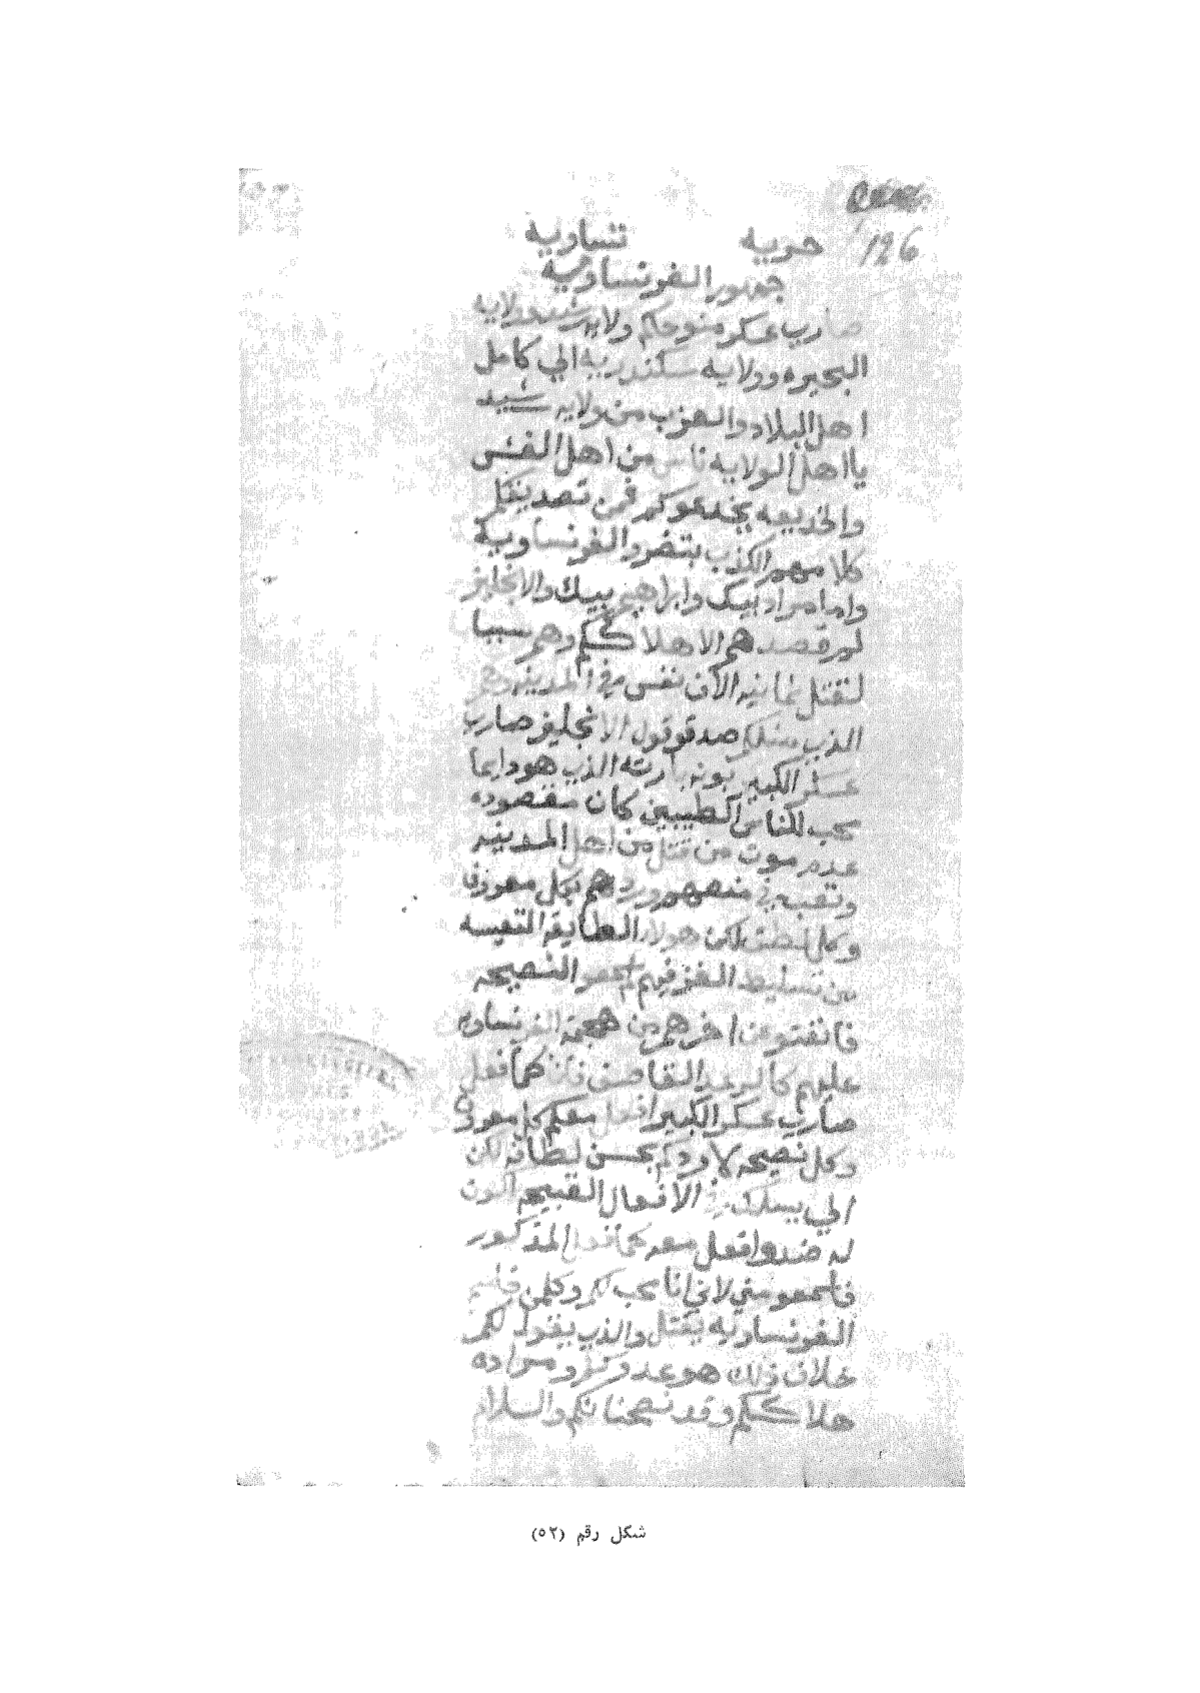 126
حريه تساويه
جمهور الفرنساويه
صاري عسكر منو حاكم ولايه رشيد وولايه
البحيره وولايه سكندريه الي كامل
اهل البلاد والعرب من ولايه رشيد
يا اهل الولايه ناس من اهل الغش
والخديعه يخدعوكم فمن تصديقكم
كلامهم الكذب بتضرو الفرنساويه
واما مراد بيك وابراهيم بيك والانجليز
لم قصدهم الا هلاككم وهم سببا
لقتل ثمانيه الاف نفس في المدينه وهم
الذي مثلكم صدقو قول الانجليز صاري
عسكر الكبير بونه بارته الذي هو دايما
محب للناس الطيبين كان مقصوده
عدم موت من قتل من اهل المدينه
وتعب في منعهم وردهم بكل معروف
وكل لطف لكن هولاء الطايفه التعيسه
من تسليط الغز فيهم لم سمعو النصيحه
فانفتو عن اخرهم من هجمة الفرنساويه
عليهم كالرعد القاصف فانا كما فعل
صاري عسكر الكبير افعل معكم كل معروف
وكل نصيحه لاردكم بحسن لطافه لكن
الي يسلك في الافعال القبيحه اكون
له ضد وافعل معه كما فعل المذكور
فاسمعو مني لاني انا محب لكم وكلمن
الفرنساويه يقتل والذي يقول لكم
خلاف ذلك هو عدوكم ومراده
هلاككم وقد نصحناكم والسلام
شكل رقم (٥٢)